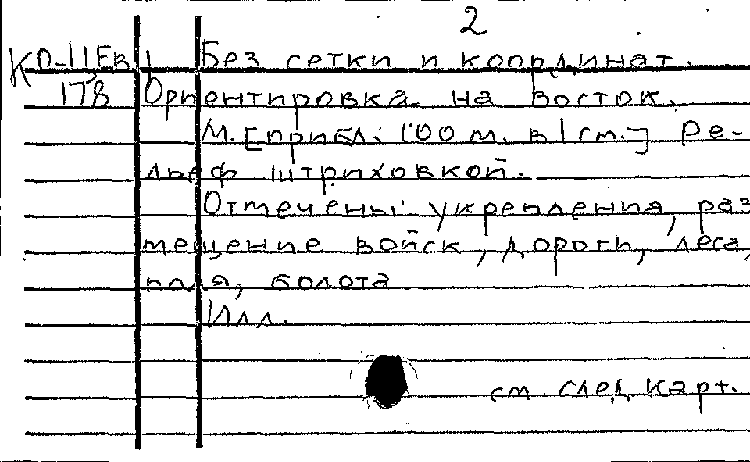 2
КО-11ЕВ Без сетки и координат.
178 Ориентировка на восток.
М. [прибл. 100 м. в 1 см.] Ре-
льеф штриховкой.
Отмечены: укрепления, раз
мещение войск, дороги, леса,
поля, болота
Илл.
см. след. карт.